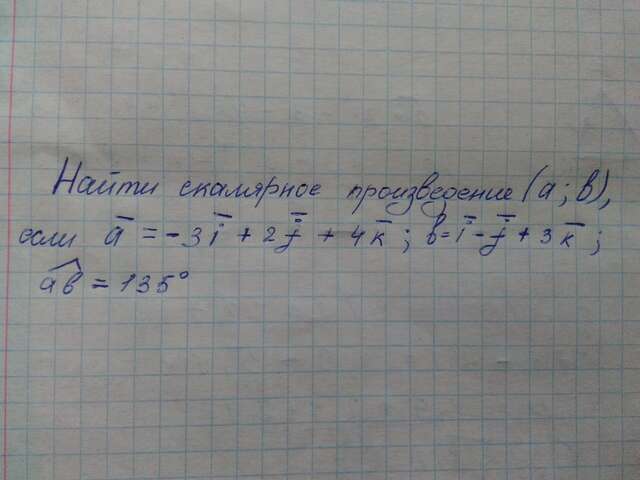 Найти скалярное произведение (а; в),
если a̅ = -3i̅ + 2j̅ + 4k̅; в = i̅ - j̅ + 3k̅;
a͡в = 135°